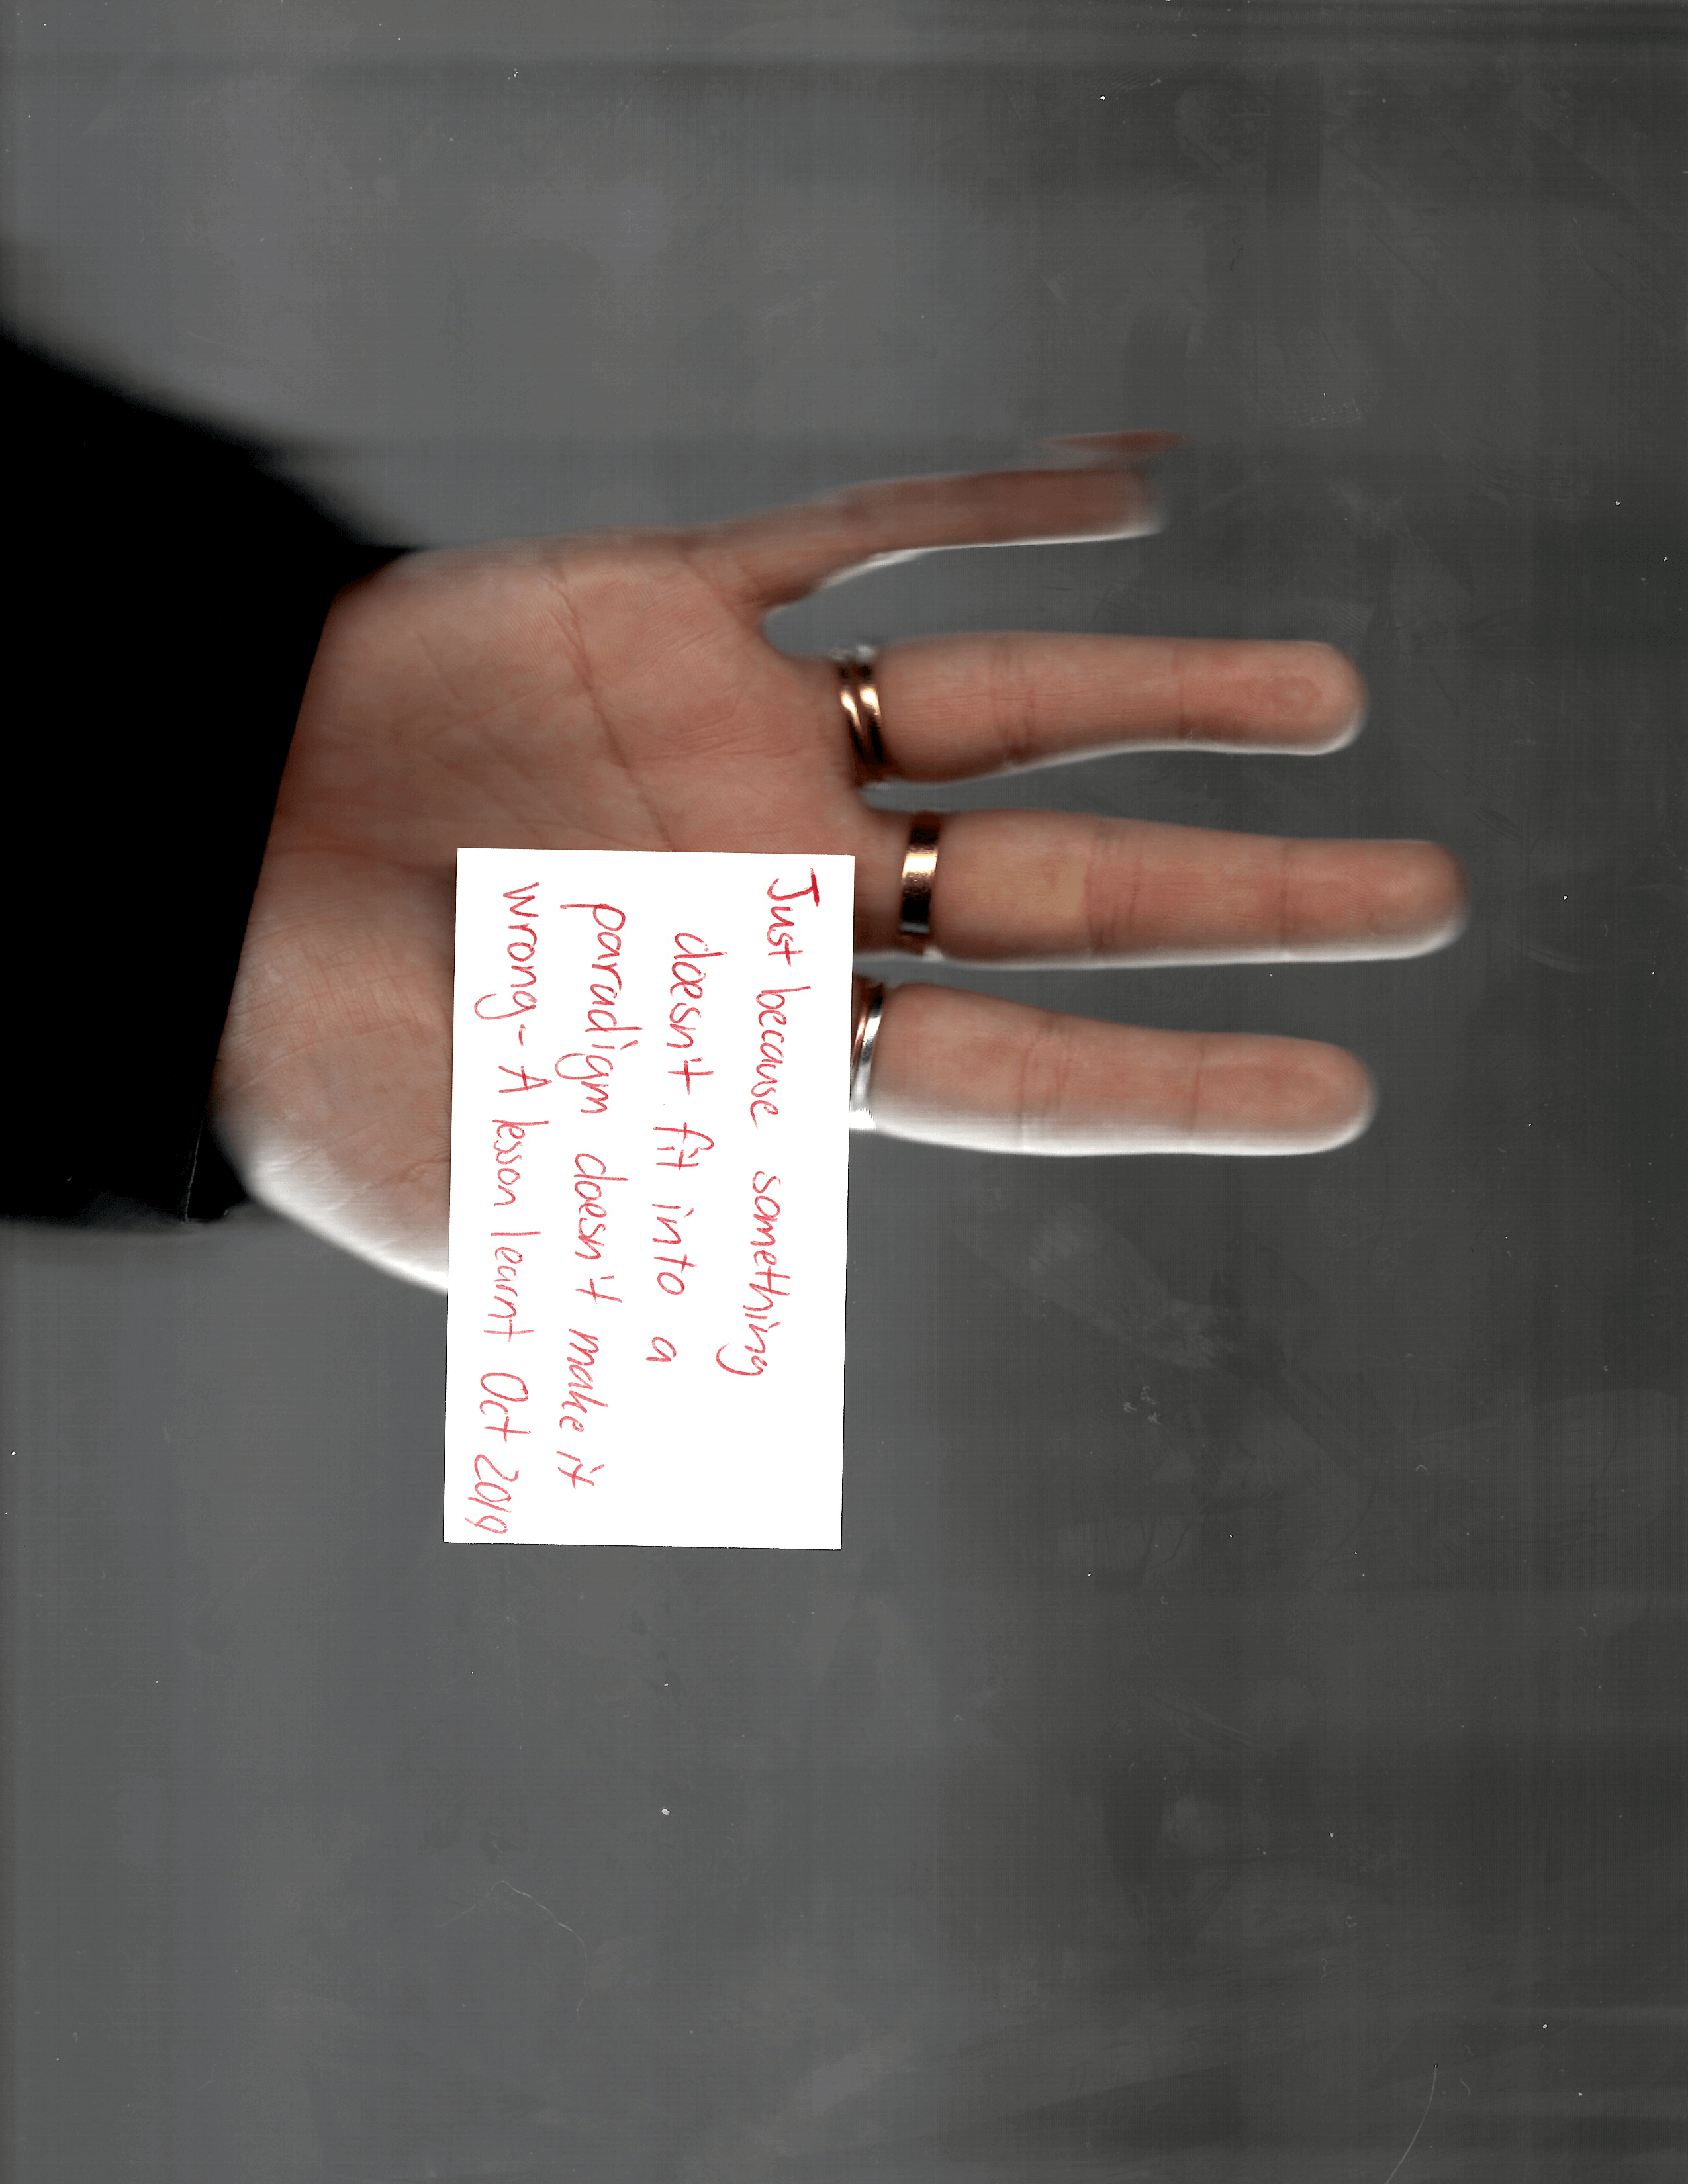 Just because something
doesn't fit into a
paradigm doesn't make it
wrong - A lesson learnt Oct 2019